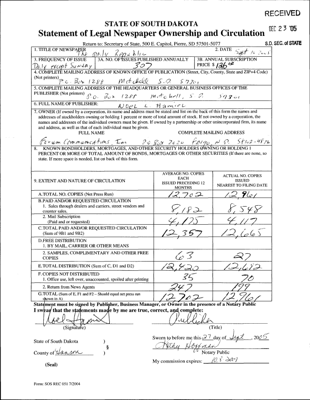 RECEIVED
DEC 23 '05
S.D. SEC. of STATE
STATE OF SOUTH DAKOTA
Statement of Legal Newspaper Ownership and Circulation
Return to: Secretary of State, 500 E. Capitol, Pierre, SD 57501-5077
1. TITLE OF NEWSPAPER
The Daily Republic
2. DATE
3. FREQUENCY OF ISSUE
Daily except Sunday
3A. NO. OF ISSUES PUBLISHED ANNUALLY
307
3B. ANNUAL SUBSCRIPTION
PRICE $
4. COMPLETE MAILING ADDRESS OF KNOWN OFFICE OF PUBLICATION (Street, City, County, State and ZIP+4 Code)
(Not printers)
PO Box 1288 Mitchell S.D 57301
5. COMPLETE MAILING ADDRESS OF THE HEADQUARTERS OR GENERAL BUSINESS OFFICES OF THE
PUBLISHER (Not printers)
P.O Box 1288 Mitchell, S D 57301
6. FULL NAME OF PUBLISHER:
Noel L Hamiel
7. OWNER (If owned by a corporation, its name and address must be stated and also
FULL NAME
COMPLETE MAILING ADDRESS
Forum Communications Inc PO Box 2020 Fargo, N D
8. KNOWN BONDHOLDERS, MORTGAGEES, AND OTHER SECURITY HOLDERS OWNING OR HOLDING 1
PERCENT OR MORE OF TOTAL AMOUNT OF BONDS, MORTGAGES OR OTHER SECURITIES (If there are none, so
state. If more space is needed, list on back of this form.
9. EXTENT AND NATURE OF CIRCULATION
AVERAGE NO. COPIES
EACH
ISSUED PRECEDING 12
MONTHS
ACTUAL NO. COPIES
ISSUED
NEAREST TO FILING DATE
A. TOTAL NO. COPIES (Net Press Run)
12,702
12,961
B. PAID AND/OR REQUESTED CIRCULATION
1. Sales through dealers and carriers, street vendors and
counter sales.
8,182
8,548
2. Mail Subscription
(Paid and or requested)
4,175
4,117
C. TOTAL PAID AND/OR REQUESTED CIRCULATION
(Sum of 9B1 and 9B2)
12,357
12,665
D. FREE DISTRIBUTION
1. BY MAIL, CARRIER OR OTHER MEANS
2. SAMPLES, COMPLIMENTARY AND OTHER FREE
COPIES
63
27
E. TOTAL DISTRIBUTION (Sum of C, D1 and D2)
12,420
12,692
F. COPIES NOT DISTRIBUTED
1. Office use, left over, unaccounted, spoiled after printing
35
70
2. Return from News Agents
247
199
G. TOTAL (Sum of E, F1 and F2 - Should equal net press run
shown in A)
12702
12,961
Statement must be signed by Publisher, Business Manager, or Owner in the presence of a Notary Public
I swear that the statements made by me are true, correct, and complete:
Publisher
(Signature)
(Title)
State of South Dakota )
Sworn to before me this 27 day of Sept 2005
§
County of )
Notary Public
(Seal)
My commission expires:
Form: SOS REC 051 7/2004